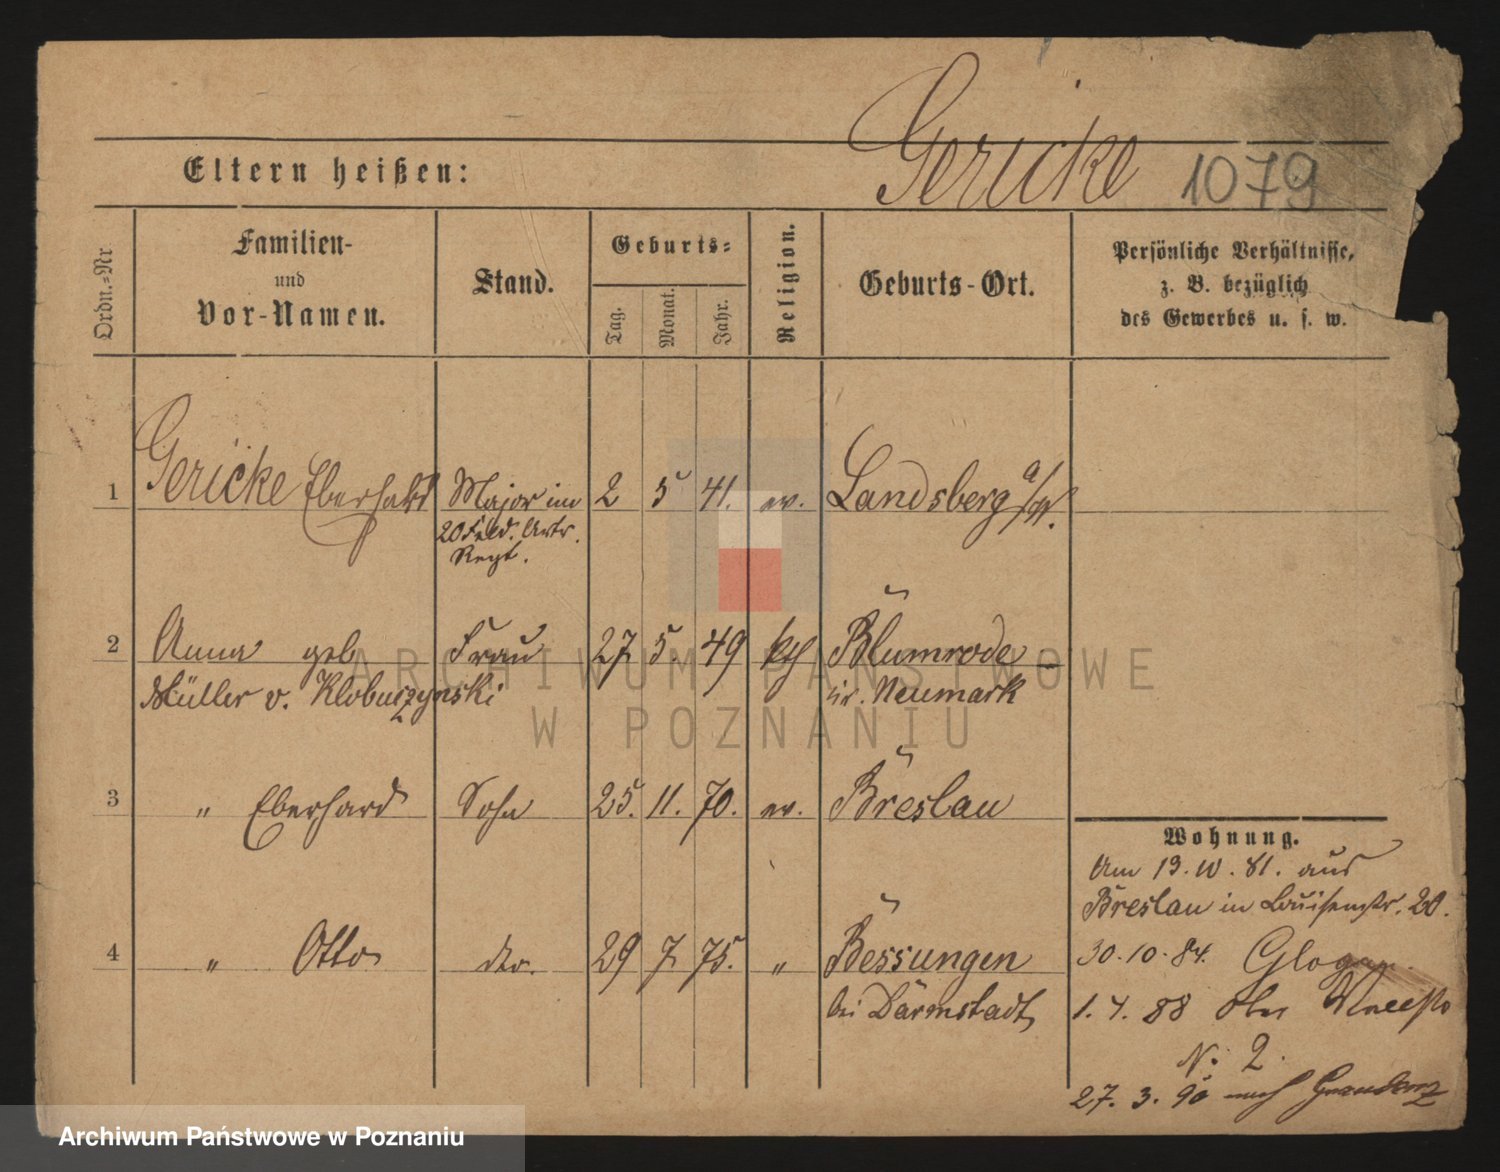 Gericke 1079
Eltern heißen:
Ordn.-Nr
Familien-
und
Vor-Namen.
Stand.
Geburts-
Tag.
Monat.
Jahr.
Religion.
Geburts-Ort.
Persönliche Verhältnisse,
z. B. bezüglich
des Gewerbes u. s. w.
1 Gericke Eberhard Major im 2 5 41. ev. Landsberg a/W.
20 Feld. Artr.
Regt.
2 Anna geb Frau 27 5. 49 kth Blumrode
Müller v. Klobuczynski kr. Neumark
3 " Eberhard Sohn 25. 11. 70. ev. Breslau
4 " Otto dto. 29 7 75. " Bessungen
bei Darmstadt
Wohnung.
Am 13. 10. 81. aus
Breslau in Louisenstr. 20.
30. 10. 84. Glogau
1. 4. 88
N: 2.
27. 3. 90 nach Graudenz
ARCHIWUM PAŃSTWOWE
W POZNANIU
Archiwum Państwowe w Poznaniu